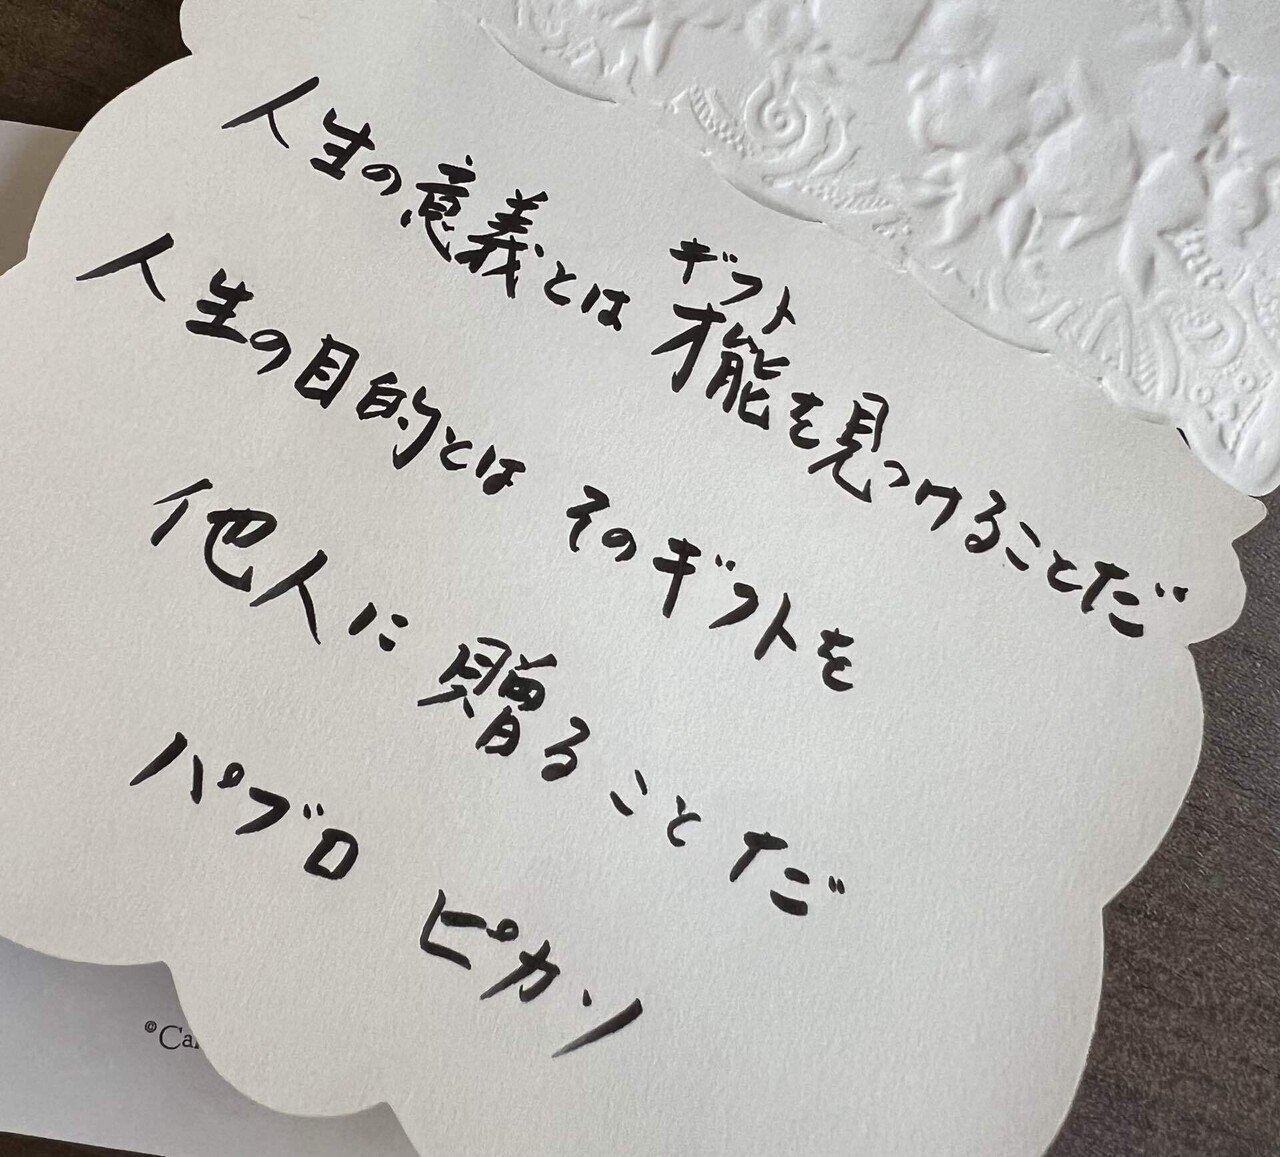 人生の意義とは
ギフト
才能を見つけることだ
人生の目的とは そのギフトを
他人に贈ることだ
パブロ ピカソ
©Ca